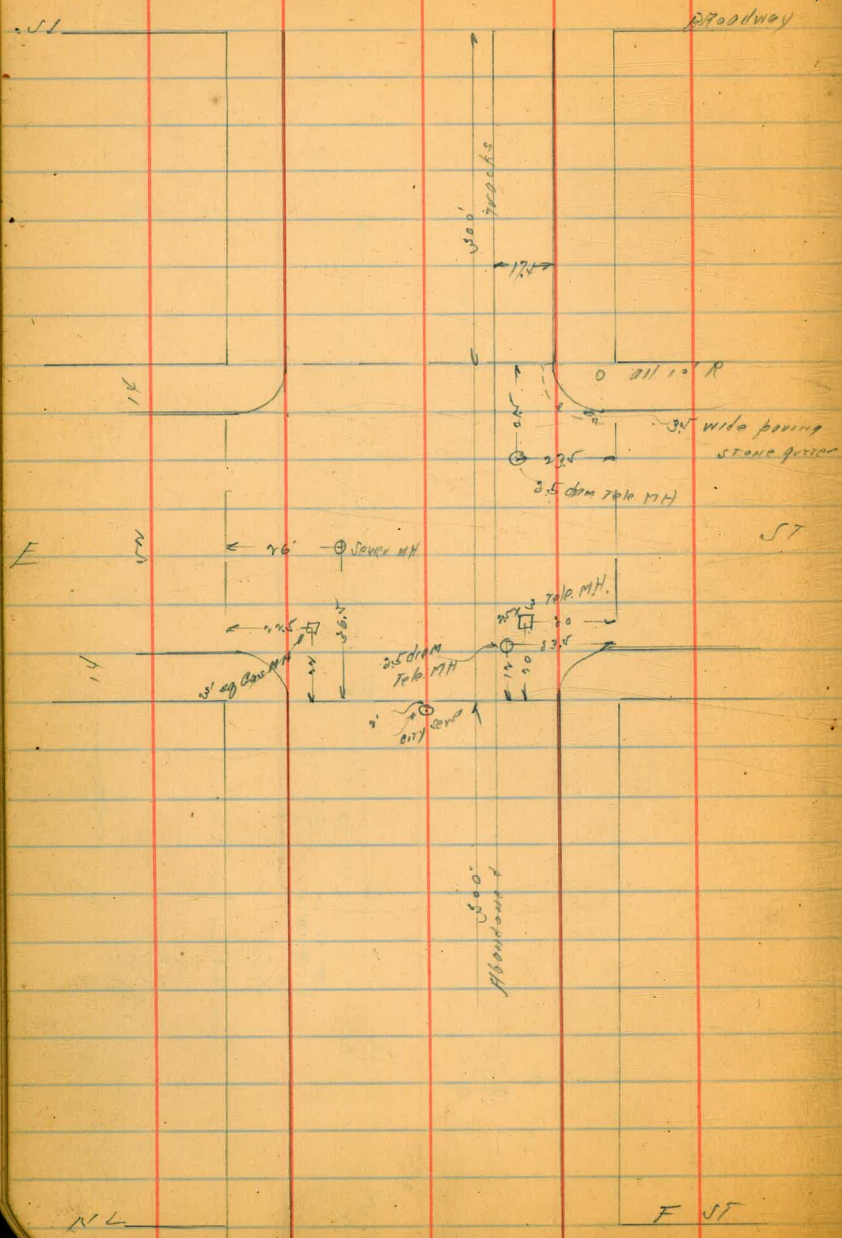 SL
Broadway
300'
Tracks
17.5
14
O all 10' R
3.5 wide paving
stone gutter
23.5
2.5 diam Tele. MH
E
ST
52
26'
Sewer MH
Tele. MH.
20
22.5
36.5
23.5
2.5 diam
Tele. MH
14
3' sq Gas MH
22
12
20
2'
City Sewer
300'
Abandoned
NL
F ST